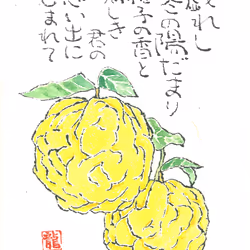 れし
冬の陽だまり
柚子の香と
しき 君の
思い出に
包まれて